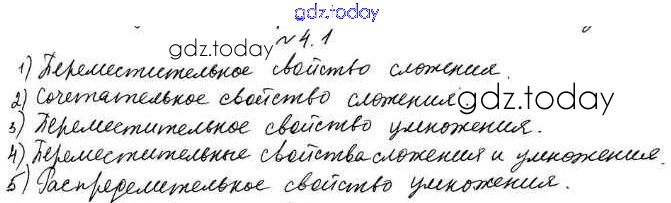 gdz.today
№ 4.1
gdz.today
1) Переместительное свойство сложения.
2) Сочетательное свойство сложения.
gdz.today
3) Переместительное свойство умножения.
4) Переместительные свойства сложения и умножения.
5) Распределительное свойство умножения.